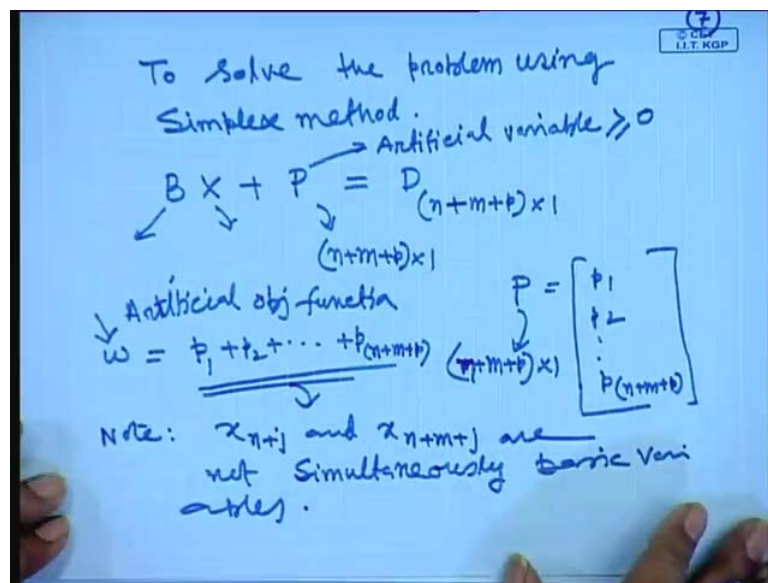 7
© CET
I.I.T. KGP
To solve the problem using
Simplex method.
→ Artificial variable ≥ 0
B X + P = D (n+m+p)×1
(n+m+p)×1
Artificial obj functia
w = p1 + p2 + ... + p(n+m+p)
P = [ p1
p2
:
p(n+m+p) ]
(n+m+p)×1
Note: x n+j and x n+m+j are
not simultaneously basic vari
ables.